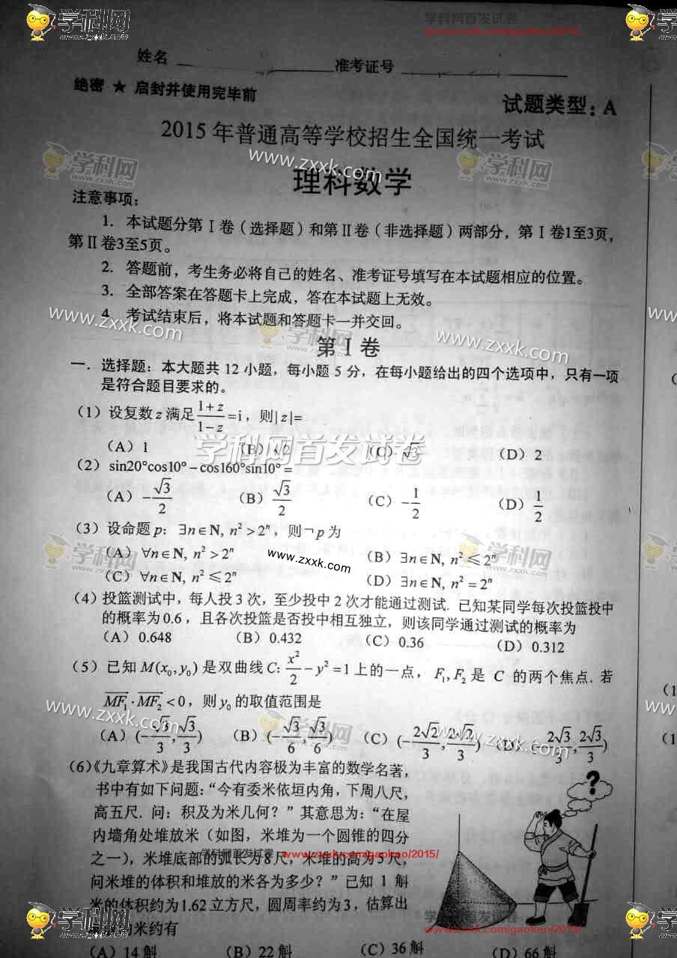 学科网
学科网首发试卷
姓名 准考证号
绝密 ★ 启封并使用完毕前
试题类型：A
2015 年普通高等学校招生全国统一考试
理科数学
注意事项：
1. 本试题分第 I 卷（选择题）和第 II 卷（非选择题）两部分，第 I 卷1至3页，
第 II 卷3至5页。
2. 答题前，考生务必将自己的姓名、准考证号填写在本试题相应的位置。
3. 全部答案在答题卡上完成，答在本试题上无效。
4. 考试结束后，将本试题和答题卡一并交回。
www.zxxk.com
第 I 卷
一．选择题：本大题共 12 小题，每小题 5 分，在每小题给出的四个选项中，只有一项
是符合题目要求的。
（1）设复数 z 满足 (1+z)/(1−z) = i，则|z|=
（A）1 （C）√3 （D）2
学科网首发试卷
（2）sin20°cos10°−cos160°sin10°=
（A）−√3/2 （B）√3/2 （C）−1/2 （D）1/2
（3）设命题 p：∃n∈N, n²>2ⁿ，则¬p 为
（A）∀n∈N, n²>2ⁿ （B）∃n∈N, n²≤2ⁿ
（C）∀n∈N, n²≤2ⁿ （D）∃n∈N, n²=2ⁿ
（4）投篮测试中，每人投 3 次，至少投中 2 次才能通过测试. 已知某同学每次投篮投中
的概率为 0.6，且各次投篮是否投中相互独立，则该同学通过测试的概率为
（A）0.648 （B）0.432 （C）0.36 （D）0.312
（5）已知 M(x₀,y₀) 是双曲线 C: x²/2 − y² = 1 上的一点，F₁,F₂ 是 C 的两个焦点. 若
MF₁·MF₂<0，则 y₀ 的取值范围是
（A）(−√3/3, √3/3) （B）(−√3/6, √3/6) （C）(−2√2/3, 2√2/3) （D） 2√3/3, 2√3/3)
（6）《九章算术》是我国古代内容极为丰富的数学名著，
书中有如下问题：“今有委米依垣内角，下周八尺，
高五尺. 问：积及为米几何？”其意思为：“在屋
内墙角处堆放米（如图，米堆为一个圆锥的四分
之一），米堆底部的弧长为8尺，米堆的高为5尺，
问米堆的体积和堆放的米各为多少？”已知 1 斛
米的体积约为 1.62 立方尺，圆周率约为 3，估算出
米约有
（A）14 斛 （B）22 斛 （C）36 斛 （D）66 斛
?